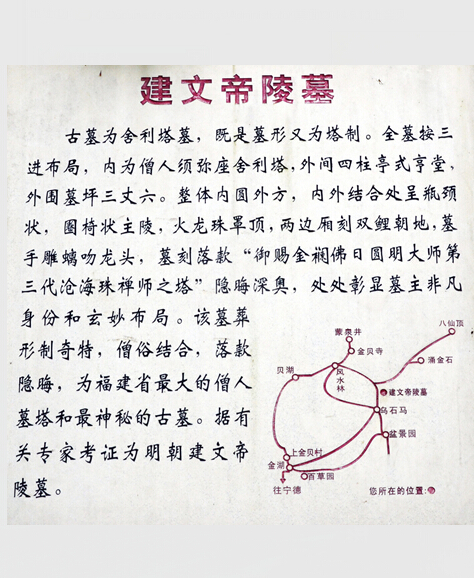 建文帝陵墓
古墓为舍利塔墓，既是墓形又为塔制。全墓按三
进布局，内为僧人须弥座舍利塔，外间四柱亭式享堂，
外围墓坪三丈六。整体内圆外方，内外结合处呈瓶颈
状，圈椅状主陵，火龙珠罩顶，两边厢刻双鲤朝地，墓
手雕螭吻龙头，墓刻落款“御赐金襕佛日圆明大师第
三代沧海珠禅师之塔”隐晦深奥，处处彰显墓主非凡
身份和玄妙布局。该墓葬
形制奇特，僧俗结合，落款
隐晦，为福建省最大的僧人
墓塔和最神秘的古墓。据有
关专家考证为明朝建文帝
陵墓。
八仙顶
蒙泉井
金贝寺
涌金石
贝湖
风水林
建文帝陵墓
乌石马
盆景园
上金贝村
金湖
百草园
往宁德
您所在的位置: